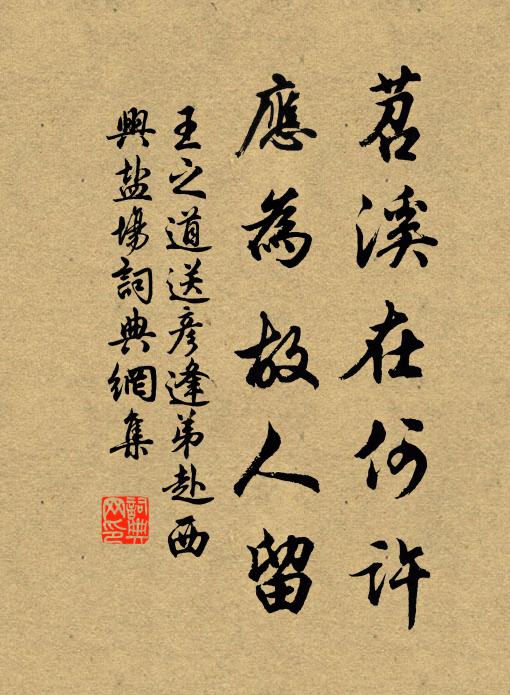 苕溪在何許
應為故人留
王之道送彦逢弟赴西
興盐場詞典網集
詞典
网印